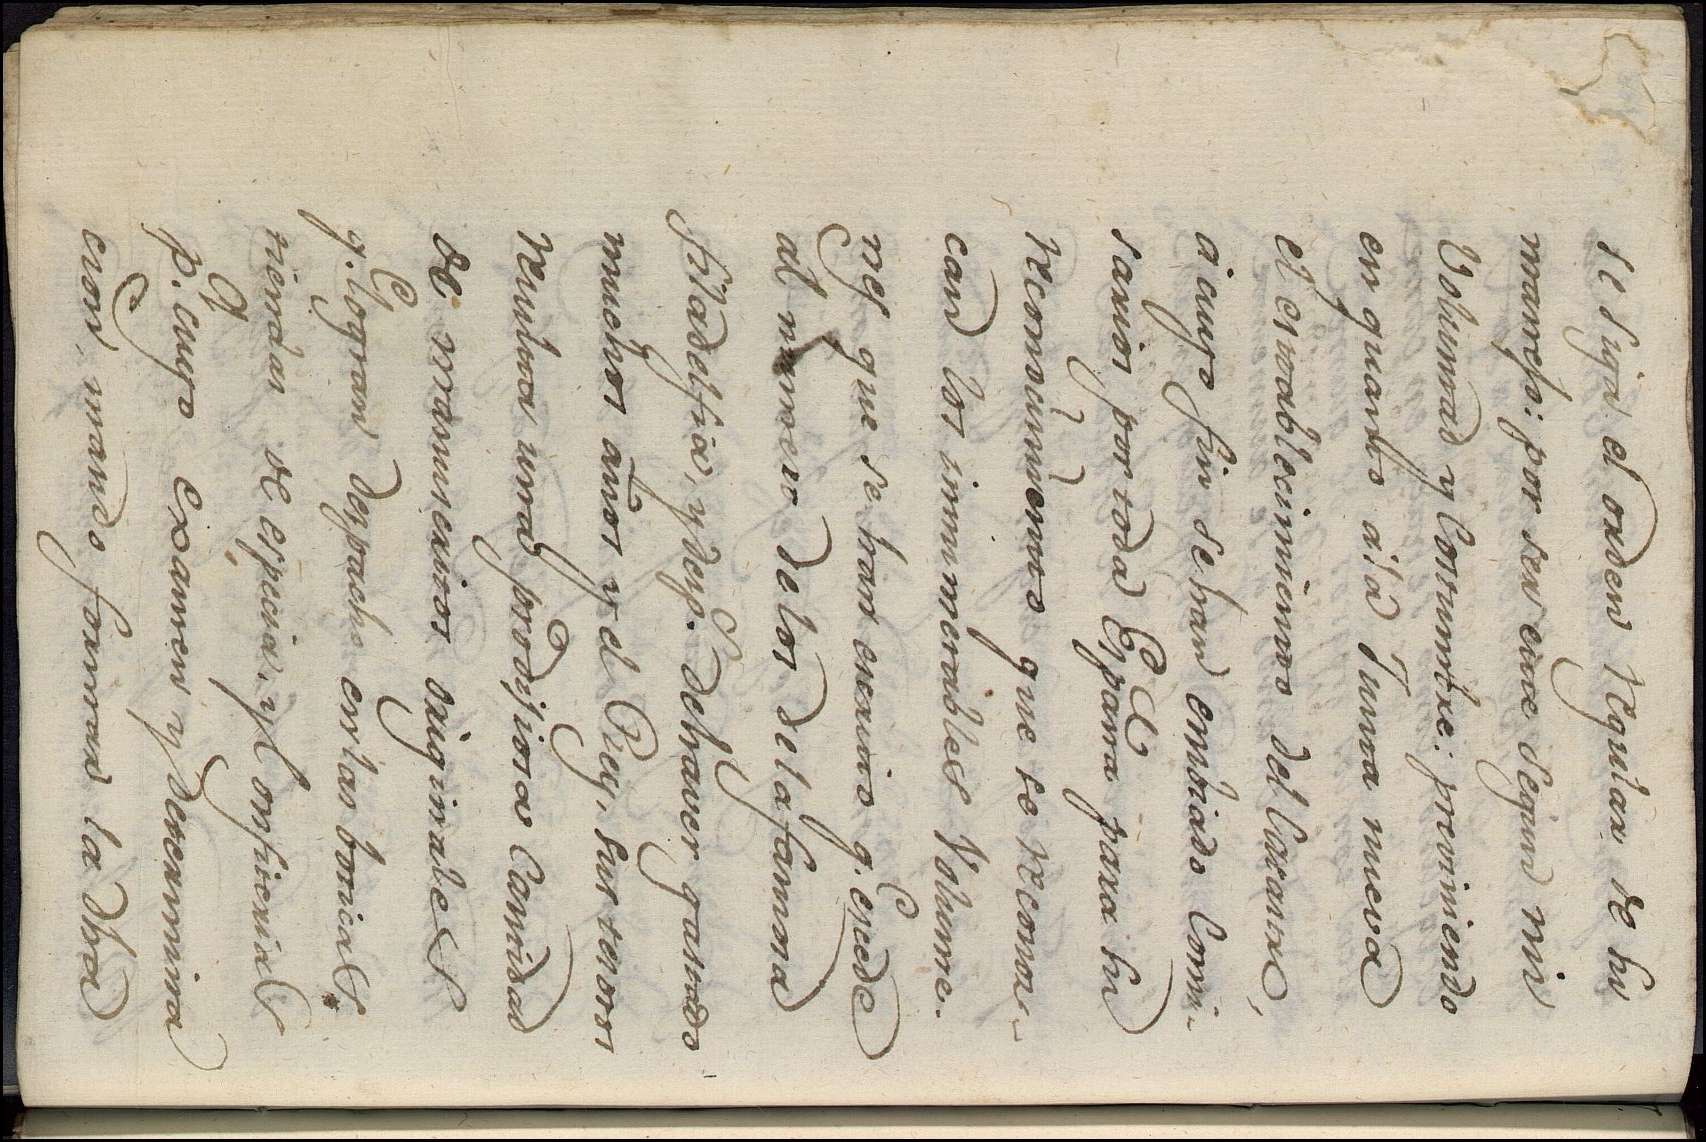 se siga el orden regular de su
manejo: por ser ciue segun mi
Voluntad y Costumbre: previniendo
en quanto a la Junta nueva
el establecimiento del Catastro,
a cuyo fin se han embiado Comi-
sarios por toda España para su
reconocimiento que se reconoz-
can los innumerables Volume-
nes que se han escrito q. Excede
al numero de los de la famosa
Filadelfia, y desp.s de haver gastado
muchos años y el Rey, sus tesoros
resulta una prodijiosa Cantidad
de manuscritos originales
q.e logran despache en las boticas
tiendas de especia, y Confiterias
p.a cuyo examen y determina
cion, mando formar la dha